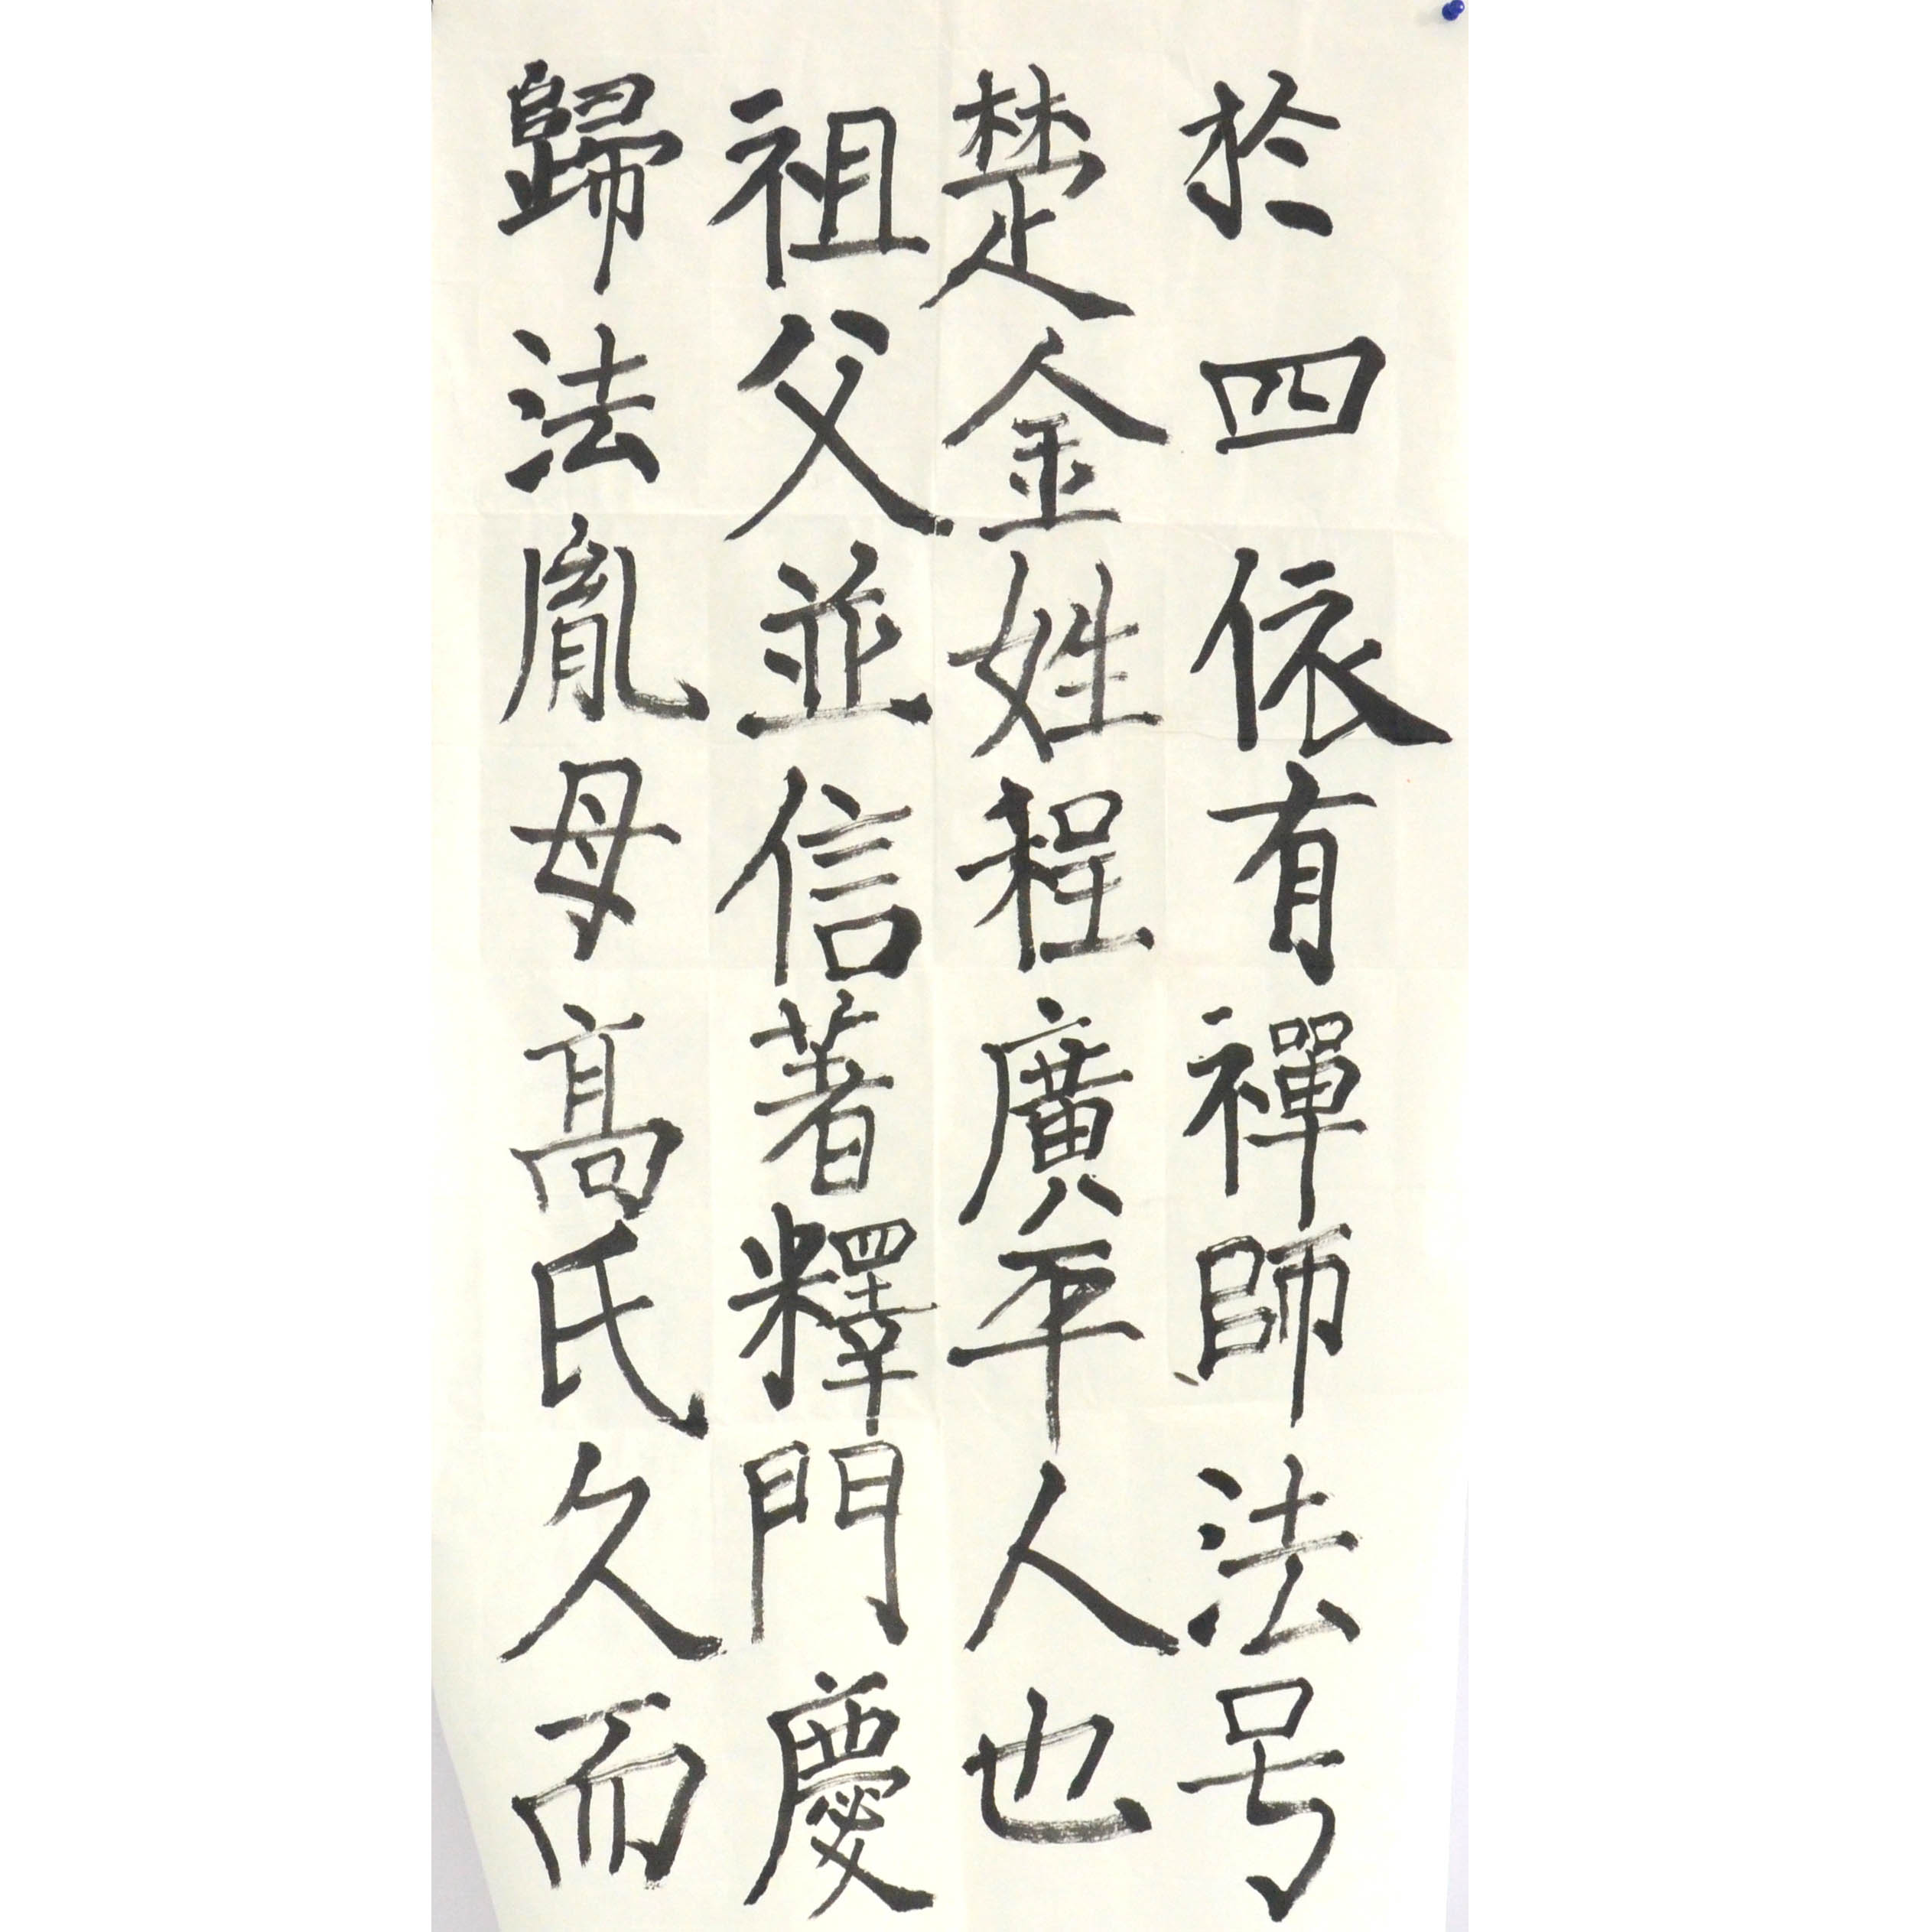 於四依有禪師法号
楚金姓程廣平人也
祖父並信著釋門慶
歸法胤母高氏久而